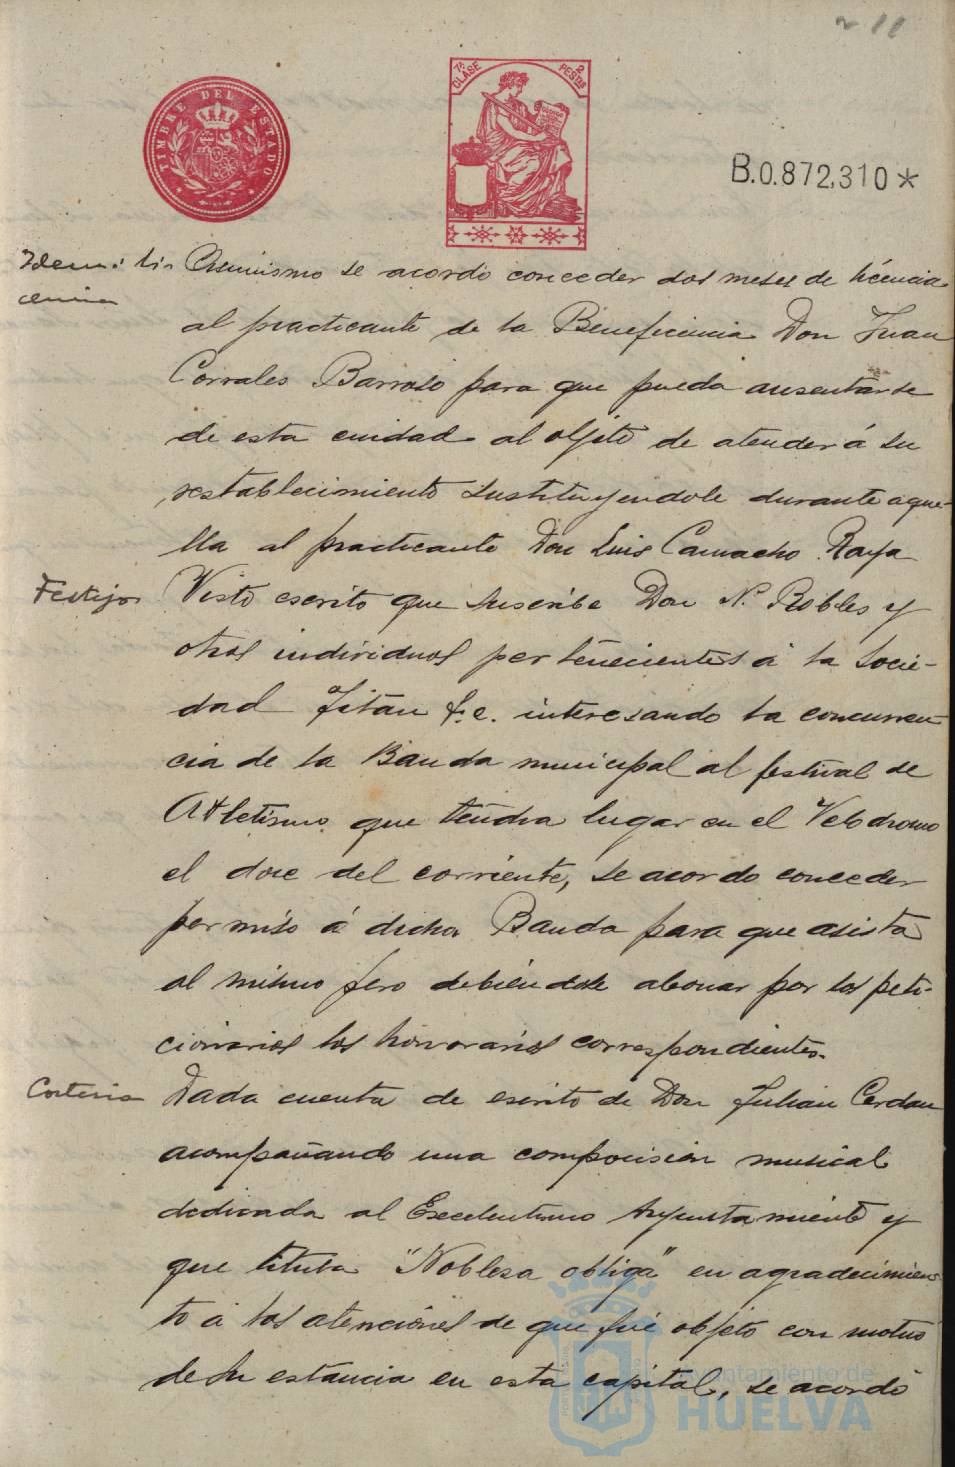 11
TIMBRE DEL ESTADO
7ª CLASE 2 PESTAS
B.0.872,310*
Idem: li-
cencia
Asimismo se acordó conceder dos meses de licencia
al practicante de la Beneficencia Don Juan
Corrales Barroso para que pueda ausentarse
de esta ciudad al objeto de atender á su
restablecimiento sustituyendole durante aque-
lla al practicante Don Luis Camacho Raya
Festejos
Visto escrito que suscribe Don N. Robles y
otros individuos pertenecientes á la Socie-
dad Titán F.C. interesando la concurren
cia de la Banda municipal al festival de
Atletismo que tendra lugar en el Velodromo
el doce del corriente, se acordo conceder
permiso á dicha Banda para que asista
al mismo pero debiendole abonar por los peti-
cionarios los honorarios correspondientes.
Cortesia
Dada cuenta de escrito de Don Julian Cerdan
acompañando una composición musical
dedicada al Excelentismo Ayuntamiento y
que titula "Nobleza obliga" en agradecimien
to á las atenciones de que fué objeto con motivo
de su estancia en esta capital, se acordó
Ayuntamiento de
HUELVA